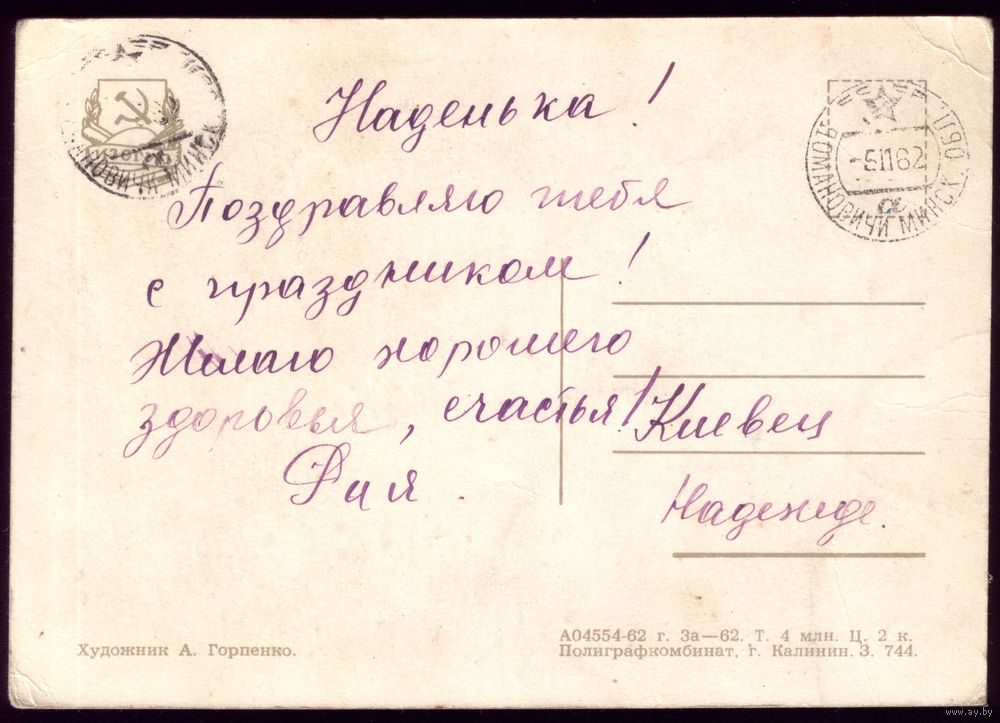 Наденька!
Поздравляю тебя
с праздником!
Желаю хорошего
здоровья, счастья!
Рая.
Киевец
Надежде.
ИЗОГИЗ
РОМАНОВИЧИ МИНСК. ОБЛ
-6 11 62
а
Художник А. Горпенко.
А04554-62 г. За—62. Т. 4 млн. Ц. 2 к.
Полиграфкомбинат, г. Калинин. З. 744.
www.ay.by